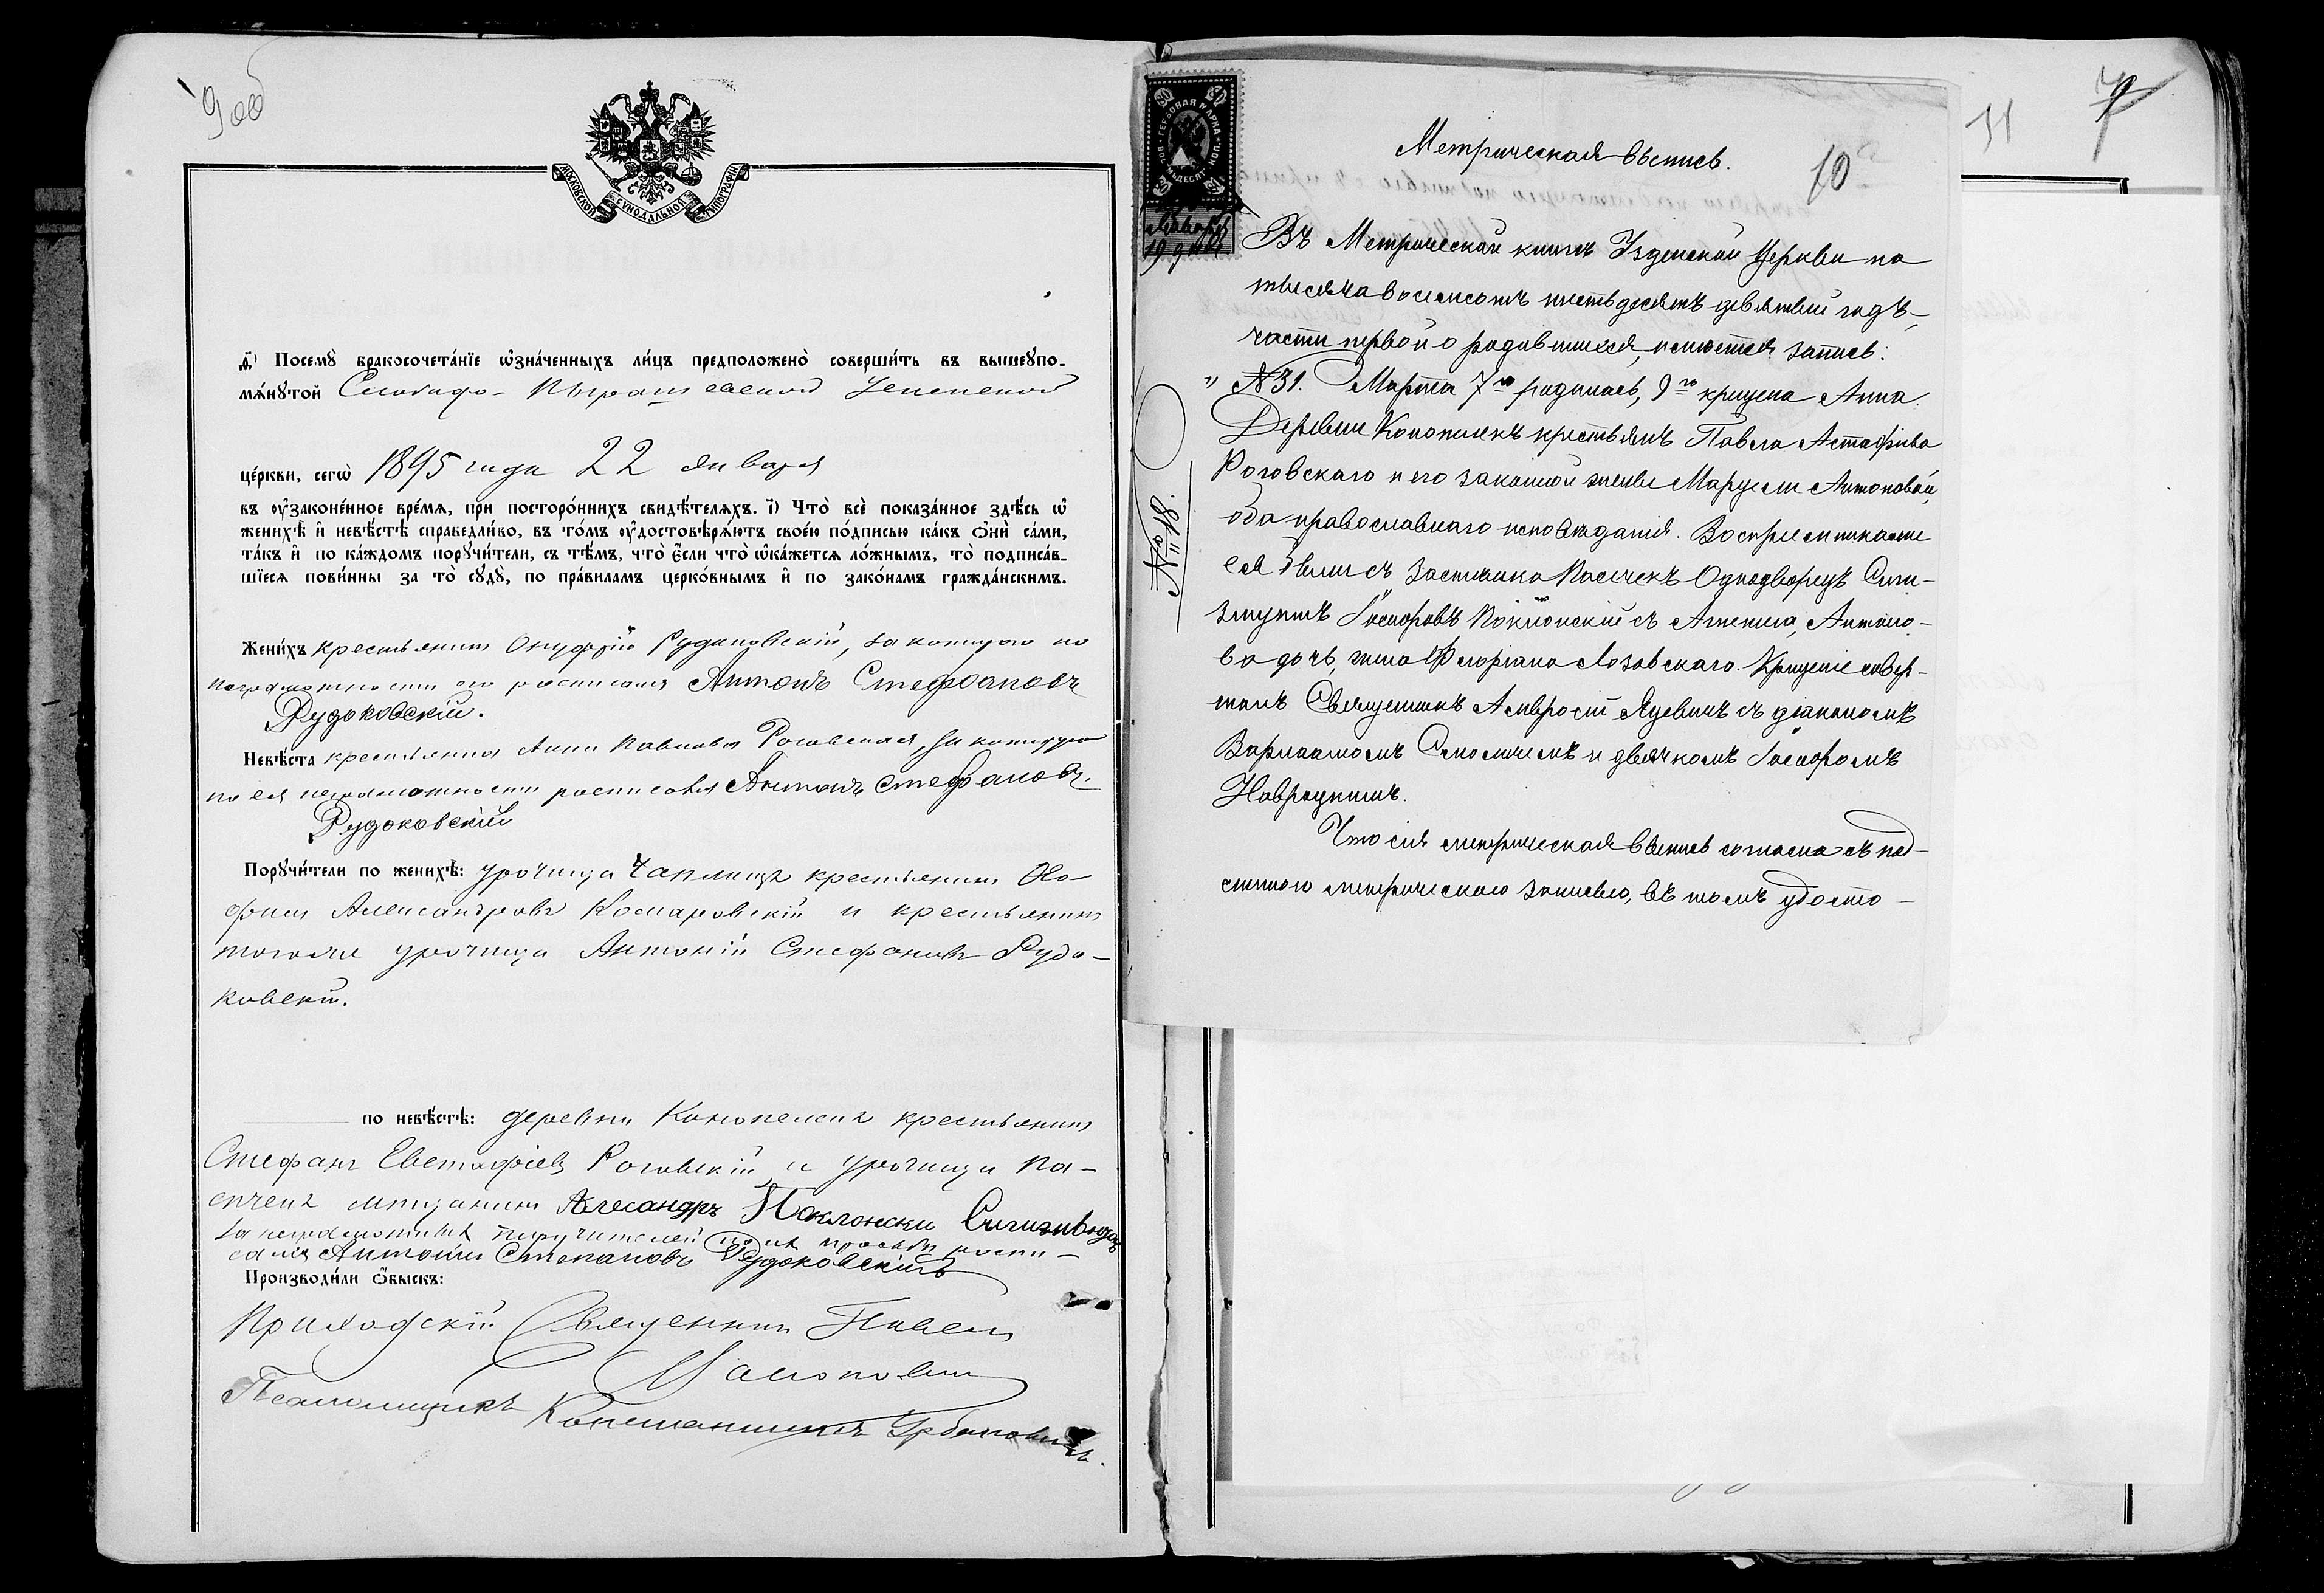 9 об
МОСКОВСКОЙ СѴНОДАЛЬНОЙ ТИПОГРАФІИ
д҃) Посемꙋ̀ бракосочета́нїе ѡ҆зна́ченныхъ ли́цъ предположено̀ соверши́ть въ вышеꙋпо-
мѧ́нꙋтой Слободо-Пырашевской Успенской
це́ркви, сегѡ̀ 1895 года 22 января
въ ᲂу҆законе́нное вре́мѧ, при посторо́ннихъ свидѣ́телѧхъ. і҃) Что̀ всѐ показа́нное здѣ́сь ѡ҆
женихѣ̀ и҆ невѣ́стѣ справедли́во, въ то́мъ ᲂу҆достовѣрѧ́ютъ своє́ю по́дписью ка́къ ѻ҆нѝ са́ми,
та́къ и҆ по ка́ждомъ порꙋчи́тели, съ тѣ́мъ, что̀ є҆́сли что̀ ѡ҆ка́жетсѧ ло́жнымъ, то̀ подписа́в-
шїесѧ пови́нны за то̀ сꙋдꙋ̀, по пра́виламъ церко́внымъ и҆ по зако́намъ гражда́нскимъ.
Жени́хъ крестьянинъ Онуфрій Рудаковскій, за котораго по
неграмотности его росписался Антонъ Стефановъ
Рудоковскій.
Невѣ́ста крестьянка Анна Павлова Роговская, за которую
по ея неграмотности росписался Антонъ Стефановъ
Рудоковскій
Порꙋчи́тели по женихѣ̀: урочища Чаплищъ крестьянинъ
Александровъ Комаровскій и крестьянинъ
того же урочища Антоній Стефановъ Рудо-
ковскій.
по невѣ́стѣ: деревни Конопелекъ крестьянинъ
Стефанъ Евстафіевъ Роговскій и урочища Па-
сѣчекъ мѣщанинъ Александръ Поклонски Сигизмундовъ
за неграмотныхъ поручителей по ихъ просьбѣ роспи-
сался Антоній Степановъ Рудоковскій
Производи́ли ѻ҆́быскъ:
Приходскій Священникъ Павелъ
Псаломщикъ Константинъ Урбановичъ.
ГЕРБОВАЯ МАРКА
ВОСЕМЬДЕСЯТЪ КОП.
80 80
Января
19 дня
Метрическая выпись.
10
11
7
Въ Метрической книгѣ Узденской Церкви на
тысяча восемсотъ шестьдесятъ девятый годъ,
части первой о родившихся, имѣется запись:
„ №31. Марта 7го родилась, 9го крещена Анна.
Деревни Конопелекъ крестьянъ Павла Астафіева
Роговскаго и его законной жены Маруси Антоновой,
оба православнаго исповѣданія. Воспріемниками
ея были съ застѣнка Пасѣчекъ Однодворецъ Сиги-
змунтъ Іосифовъ Поклонскій съ Антоно-
ва дочь, жена Флоріана Лозовскаго. Крещеніе совер-
шалъ Священникъ Амвросій Яцевичъ съ діакономъ
Варлаамомъ Смоличемъ и дьячкомъ Іосифомъ
Навроцкимъ.
Что сія метрическая выпись согласна съ под-
линною метрическою записью, въ томъ удосто-
№ 18.